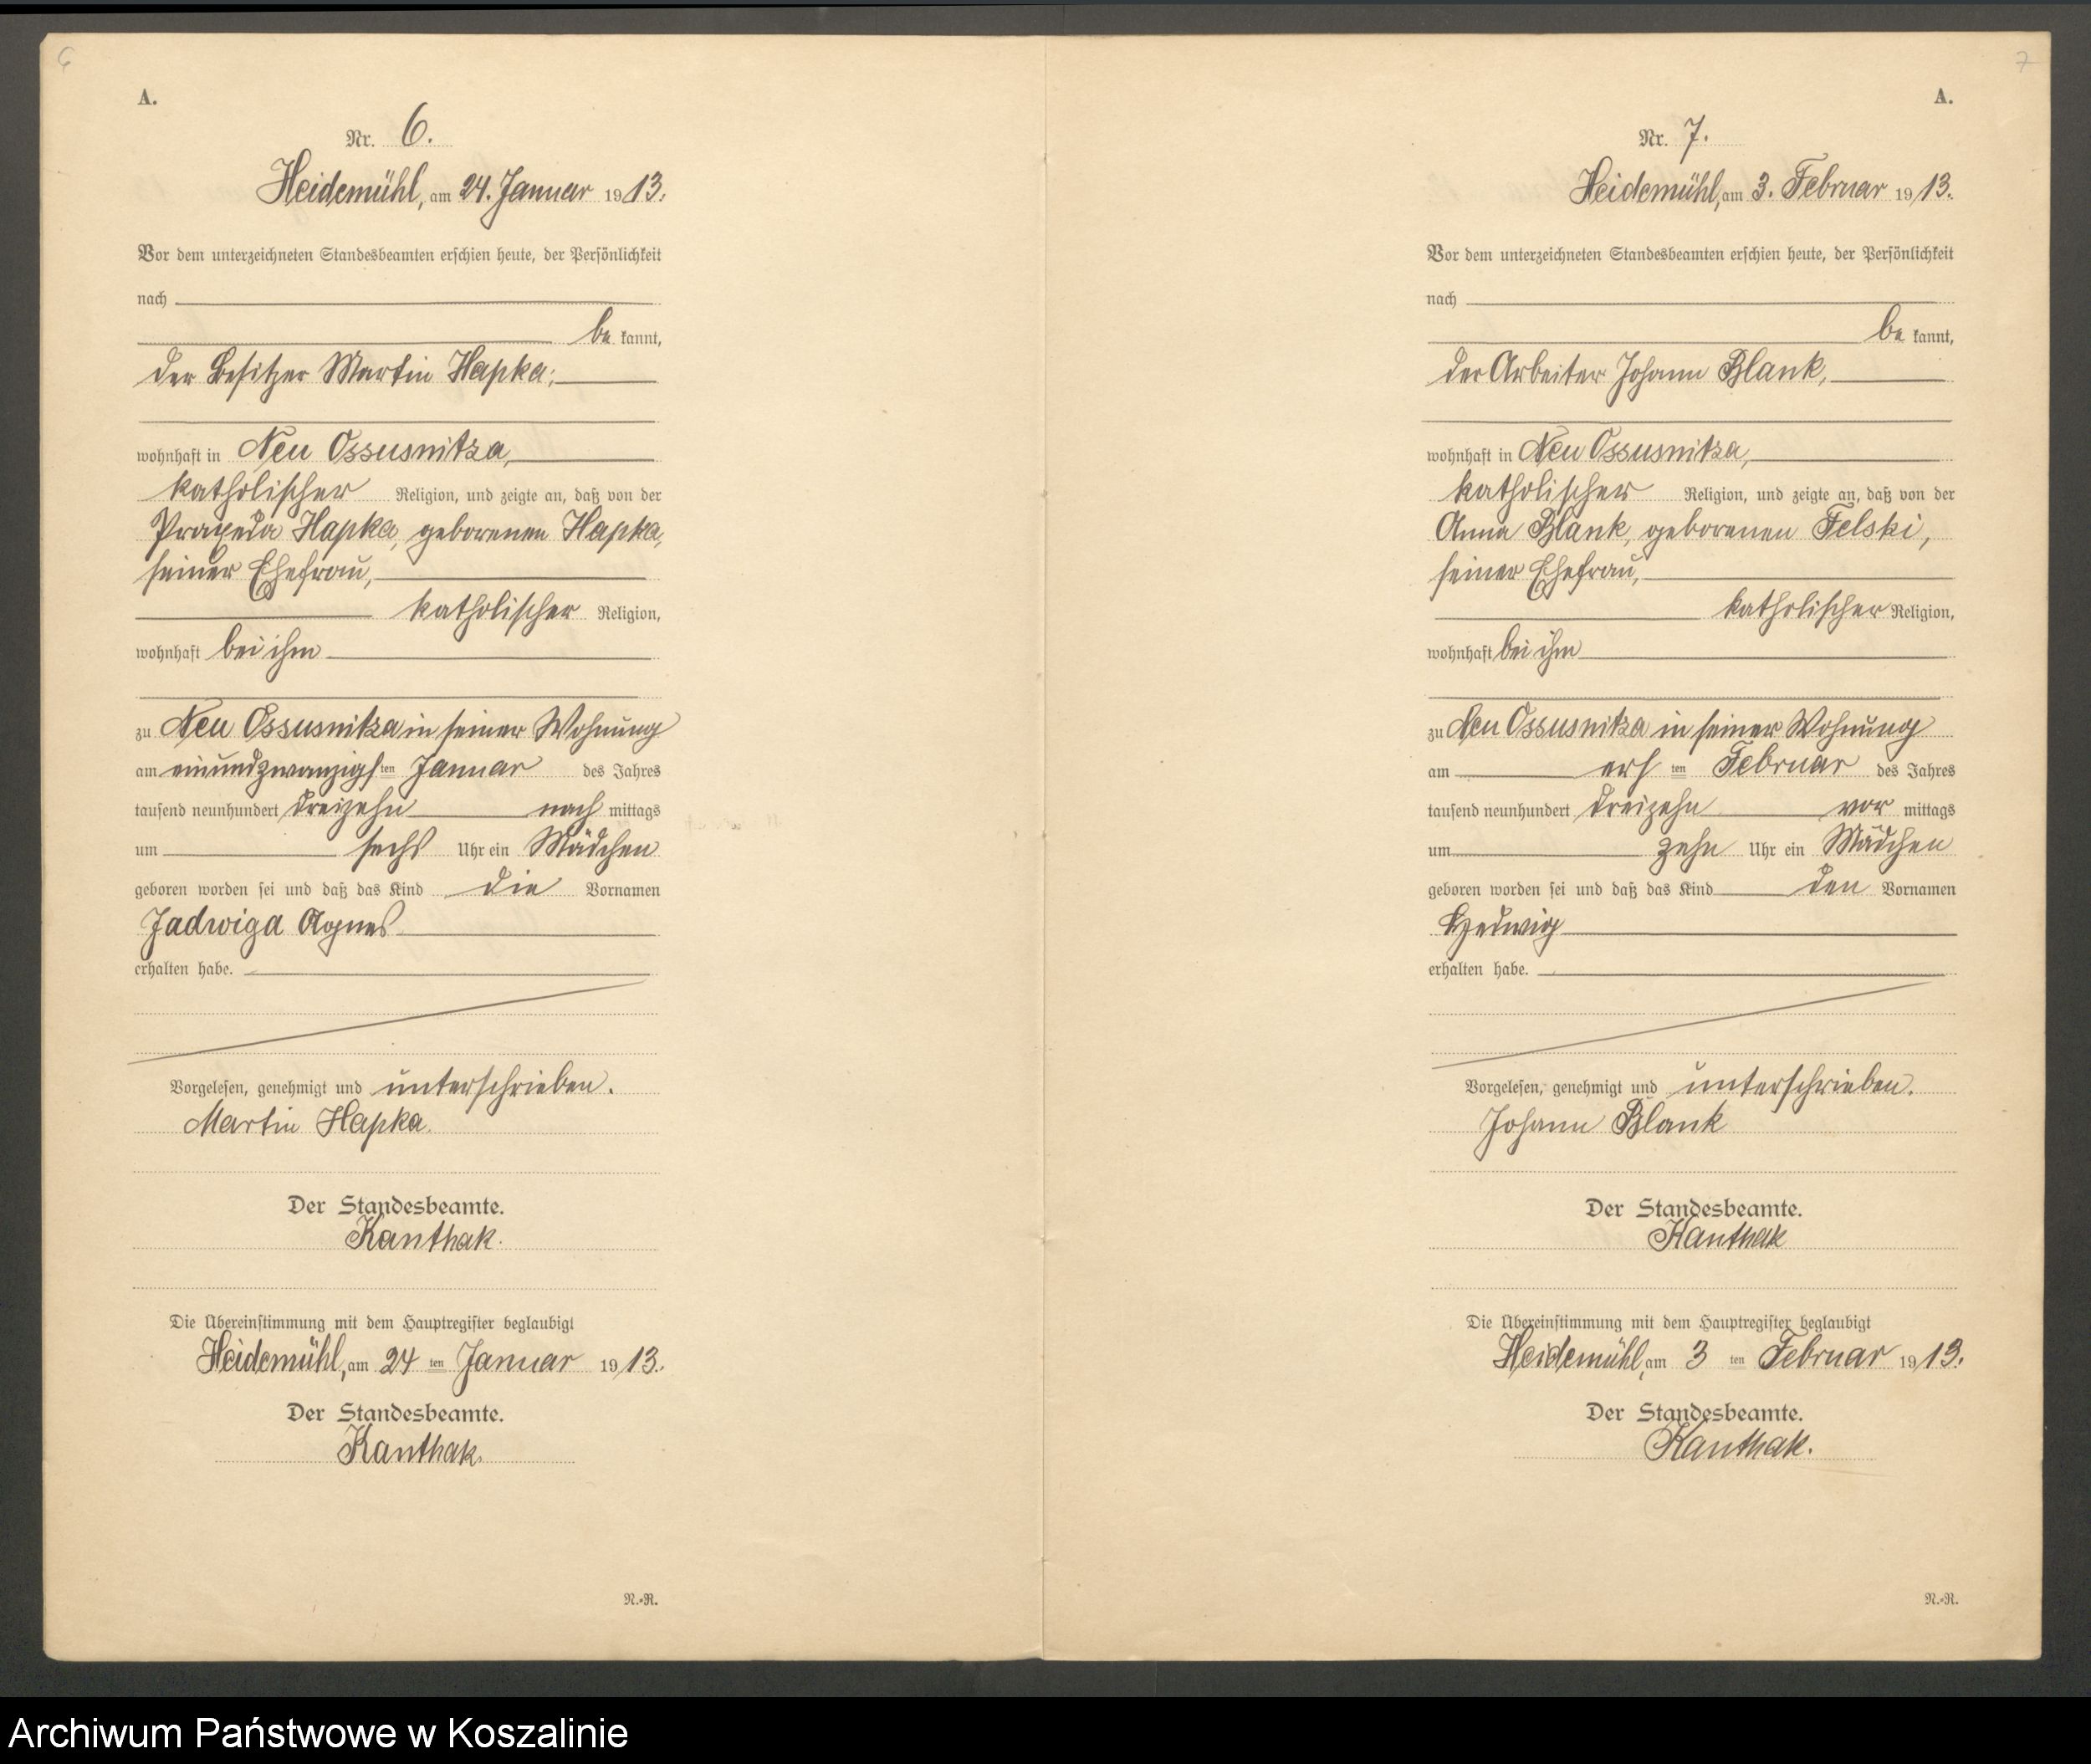 6
A.
Nr. 6.
Heidemühl, am 24. Januar 1913.
Vor dem unterzeichneten Standesbeamten erschien heute, der Persönlichkeit
nach
be kannt,
der Besitzer Martin Hapka,
wohnhaft in Neu Ossusnitza,
katholischer Religion, und zeigte an, daß von der
Praxeda Hapka, geborenen Hapka,
seiner Ehefrau,
katholischer Religion,
wohnhaft bei ihm
zu Neu Ossusnitza in seiner Wohnung
am einundzwanzigsten Januar des Jahres
tausend neunhundert dreizehn nach mittags
um sechs Uhr ein Mädchen
geboren worden sei und daß das Kind die Vornamen
Jadwiga Agnes
erhalten habe.
Vorgelesen, genehmigt und unterschrieben.
Martin Hapka.
Der Standesbeamte.
Kanthak.
Die Übereinstimmung mit dem Hauptregister beglaubigt
Heidemühl, am 24 ten Januar 1913.
Der Standesbeamte.
Kanthak.
N.-R.
7
A.
Nr. 7.
Heidemühl, am 3. Februar 1913.
Vor dem unterzeichneten Standesbeamten erschien heute, der Persönlichkeit
nach
be kannt,
der Arbeiter Johann Blank,
wohnhaft in Neu Ossusnitza,
katholischer Religion, und zeigte an, daß von der
Anna Blank, geborenen Felski,
seiner Ehefrau,
katholischer Religion,
wohnhaft bei ihm
zu Neu Ossusnitza in seiner Wohnung
am ersten Februar des Jahres
tausend neunhundert dreizehn vor mittags
um zehn Uhr ein Mädchen
geboren worden sei und daß das Kind den Vornamen
Hedwig
erhalten habe.
Vorgelesen, genehmigt und unterschrieben.
Johann Blank
Der Standesbeamte.
Kanthak
Die Übereinstimmung mit dem Hauptregister beglaubigt
Heidemühl, am 3 ten Februar 1913.
Der Standesbeamte.
Kanthak.
N.-R.
Archiwum Państwowe w Koszalinie